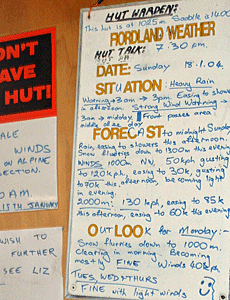 HUT WARDEN:
This hut is at 1025m Saddle is 1400
FIORDLAND WEATHER
HUT TALK: 7.30 pm.
DATE: Sunday 18.1.04.
SITUATION: Heavy Rain
Warning 3am → 3pm Easing to showers
in evening. Strong Wind Warning →
3am → midday. Front passes area
middle of the day.
FORECAST to midnight Sunday
Rain, easing to showers this afternoon.
Snow flurries down to 1300m this evening
WINDS 1000m NW, 50kph gusting
to 120kph, easing to 30k, gusting
to 70k this afternoon, becoming light
in evening.
2000m: 130 kph, easing to 85k
this afternoon, easing to 60k this evening
OUTLOOK for Monday:-
Snow flurries down to 1000m.
Clearing in morning. Becoming
mostly FINE Winds 40kph
TUES, WEDS & THURS
FINE with light winds
ON'T
AVE
HUT!
ALE
WINDS
ON ALPINE
SECTION.
0 AM.
15TH JANUARY
WISH TO
FURTHER
SEE LIZ